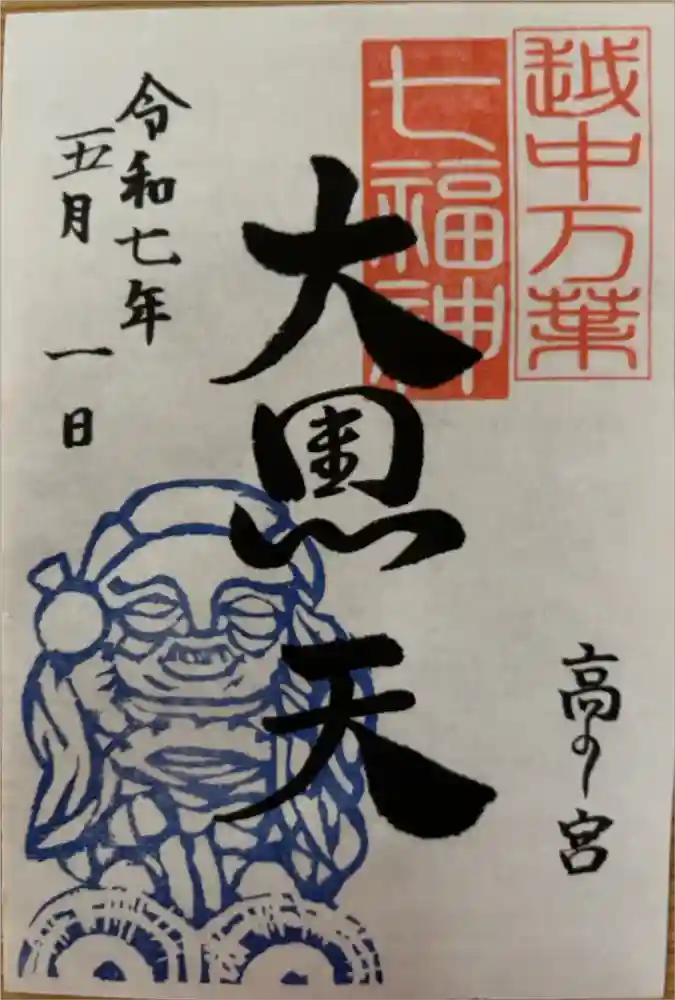 越中万葉
七福神
高の宮
大黒天
令和七年
五月一日